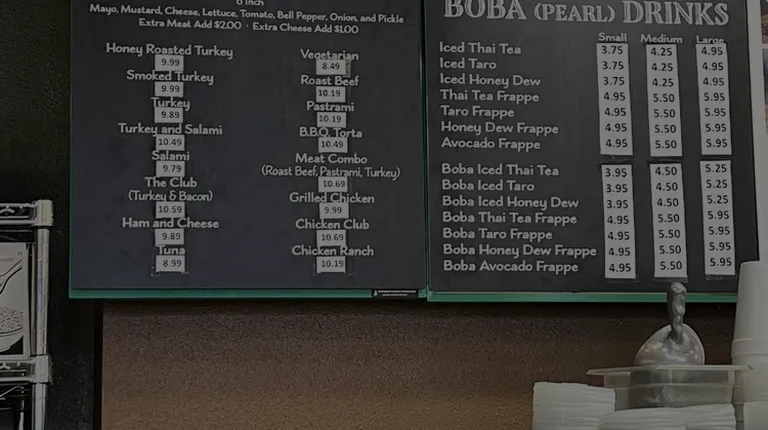 6 Inch
Mayo, Mustard, Cheese, Lettuce, Tomato, Bell Pepper, Onion, and Pickle
Extra Meat Add $2.00 · Extra Cheese Add $1.00
Honey Roasted Turkey
9.99
Smoked Turkey
9.99
Turkey
9.89
Turkey and Salami
10.49
Salami
9.79
The Club
(Turkey & Bacon)
10.59
Ham and Cheese
9.89
Tuna
8.99
Vegetarian
8.49
Roast Beef
10.19
Pastrami
10.19
B.B.Q. Torta
10.49
Meat Combo
(Roast Beef, Pastrami, Turkey)
10.69
Grilled Chicken
9.99
Chicken Club
10.69
Chicken Ranch
10.19
BOBA (PEARL) DRINKS
Small Medium Large
Iced Thai Tea 3.75 4.25 4.95
Iced Taro 3.75 4.25 4.95
Iced Honey Dew 3.75 4.25 4.95
Thai Tea Frappe 4.95 5.50 5.95
Taro Frappe 4.95 5.50 5.95
Honey Dew Frappe 4.95 5.50 5.95
Avocado Frappe 4.95 5.50 5.95
Boba Iced Thai Tea 3.95 4.50 5.25
Boba Iced Taro 3.95 4.50 5.25
Boba Iced Honey Dew 3.95 4.50 5.25
Boba Thai Tea Frappe 4.95 5.50 5.95
Boba Taro Frappe 4.95 5.50 5.95
Boba Honey Dew Frappe 4.95 5.50 5.95
Boba Avocado Frappe 4.95 5.50 5.95